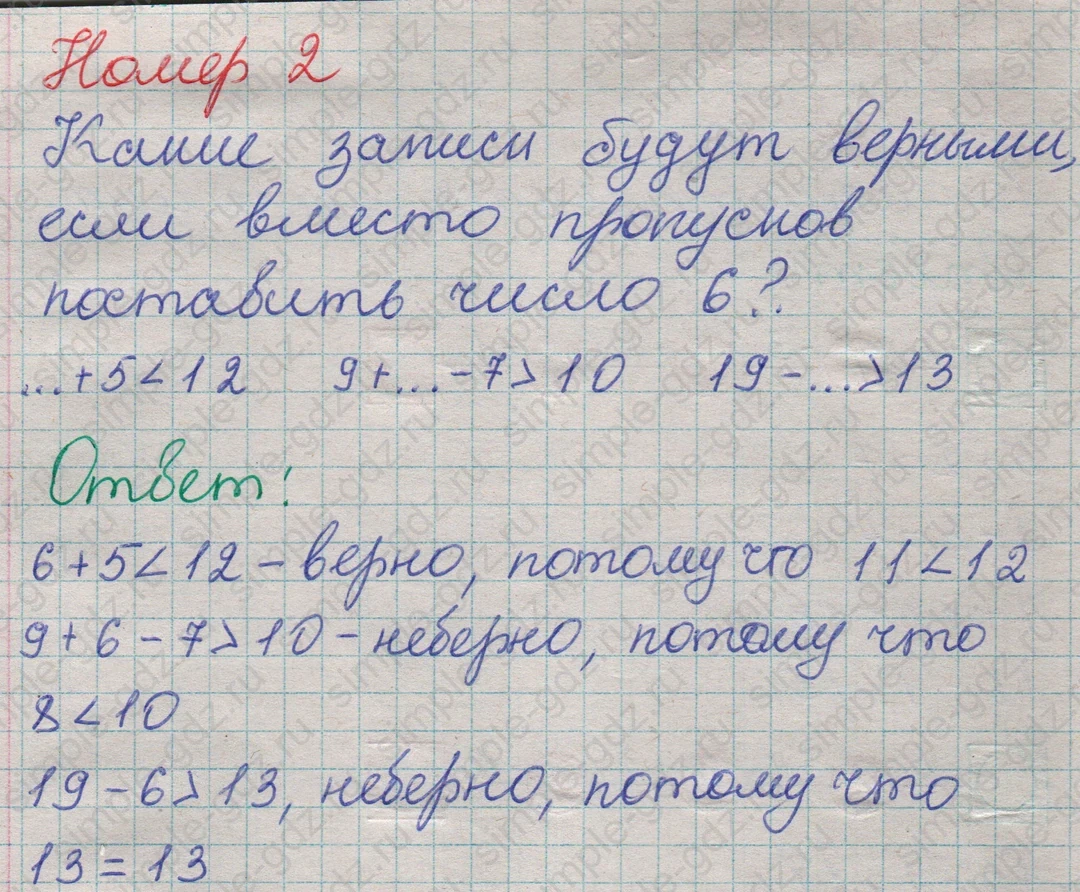 Номер 2
Какие записи будут верными,
если вместо пропусков
поставить число 6?
...+5<12 9+...-7>10 19-...>13
Ответ:
6+5<12 - верно, потому что 11<12
9+6-7>10 - неверно, потому что
8<10
19-6>13, неверно, потому что
13=13
simple-gdz.ru